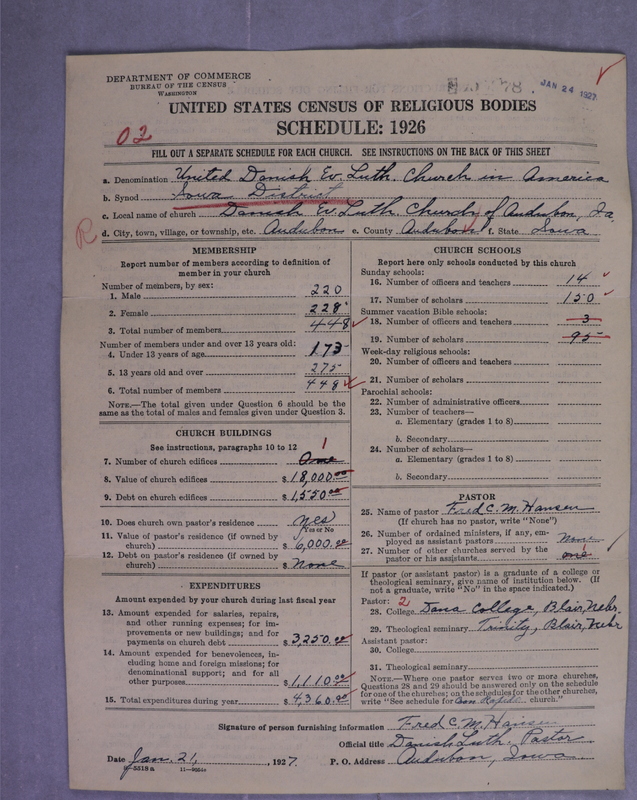 DEPARTMENT OF COMMERCE
BUREAU OF THE CENSUS
WASHINGTON
JAN 24 1927
UNITED STATES CENSUS OF RELIGIOUS BODIES
SCHEDULE: 1926
02
FILL OUT A SEPARATE SCHEDULE FOR EACH CHURCH. SEE INSTRUCTIONS ON THE BACK OF THIS SHEET
a. Denomination United Danish Ev. Luth. Church in America
b. Synod Iowa District
c. Local name of church Danish Ev. Luth. Church of Audubon, Ia.
R
d. City, town, village, or township, etc. Audubon e. County Audubon f. State Iowa
MEMBERSHIP
Report number of members according to definition of
member in your church
Number of members, by sex:
1. Male 220
2. Female 228
3. Total number of members 448
Number of members under and over 13 years old:
4. Under 13 years of age 173
5. 13 years old and over 275
6. Total number of members 448
NOTE.—The total given under Question 6 should be the
same as the total of males and females given under Question 3.
CHURCH BUILDINGS
See instructions, paragraphs 10 to 12
1
7. Number of church edifices One
8. Value of church edifices $18,000.00
9. Debt on church edifices $1,550.00
10. Does church own pastor's residence yes
Yes or No
11. Value of pastor's residence (if owned by
church) $6,000.00
12. Debt on pastor's residence (if owned by
church) $ None
EXPENDITURES
Amount expended by your church during last fiscal year
13. Amount expended for salaries, repairs,
and other running expenses; for im-
provements or new buildings; and for
payments on church debt $3,250.00
14. Amount expended for benevolences, in-
cluding home and foreign missions; for
denominational support; and for all
other purposes $1,110.00
15. Total expenditures during year $4,360.00
CHURCH SCHOOLS
Report here only schools conducted by this church
Sunday schools:
16. Number of officers and teachers 14
17. Number of scholars 150
Summer vacation Bible schools:
18. Number of officers and teachers 3
19. Number of scholars 95
Week-day religious schools:
20. Number of officers and teachers
21. Number of scholars
Parochial schools:
22. Number of administrative officers
23. Number of teachers—
a. Elementary (grades 1 to 8)
b. Secondary
24. Number of scholars—
a. Elementary (grades 1 to 8)
b. Secondary
PASTOR
25. Name of pastor Fred C. M. Hansen
(If church has no pastor, write "None")
26. Number of ordained ministers, if any, em-
ployed as assistant pastors None
27. Number of other churches served by the
pastor or his assistants one
If pastor (or assistant pastor) is a graduate of a college or
theological seminary, give name of institution below. (If
not a graduate, write "No" in the space indicated.)
Pastor: 2
28. College Dana College, Blair, Nebr.
29. Theological seminary Trinity, Blair, Nebr
Assistant pastor:
30. College
31. Theological seminary
NOTE.—Where one pastor serves two or more churches,
Questions 28 and 29 should be answered only on the schedule
for one of the churches; on the schedules for the other churches,
write "See schedule for Coon Rapids church."
Signature of person furnishing information Fred C. M. Hansen
Official title Danish Luth. Pastor
Date Jan. 21, 1927. P. O. Address Audubon, Iowa